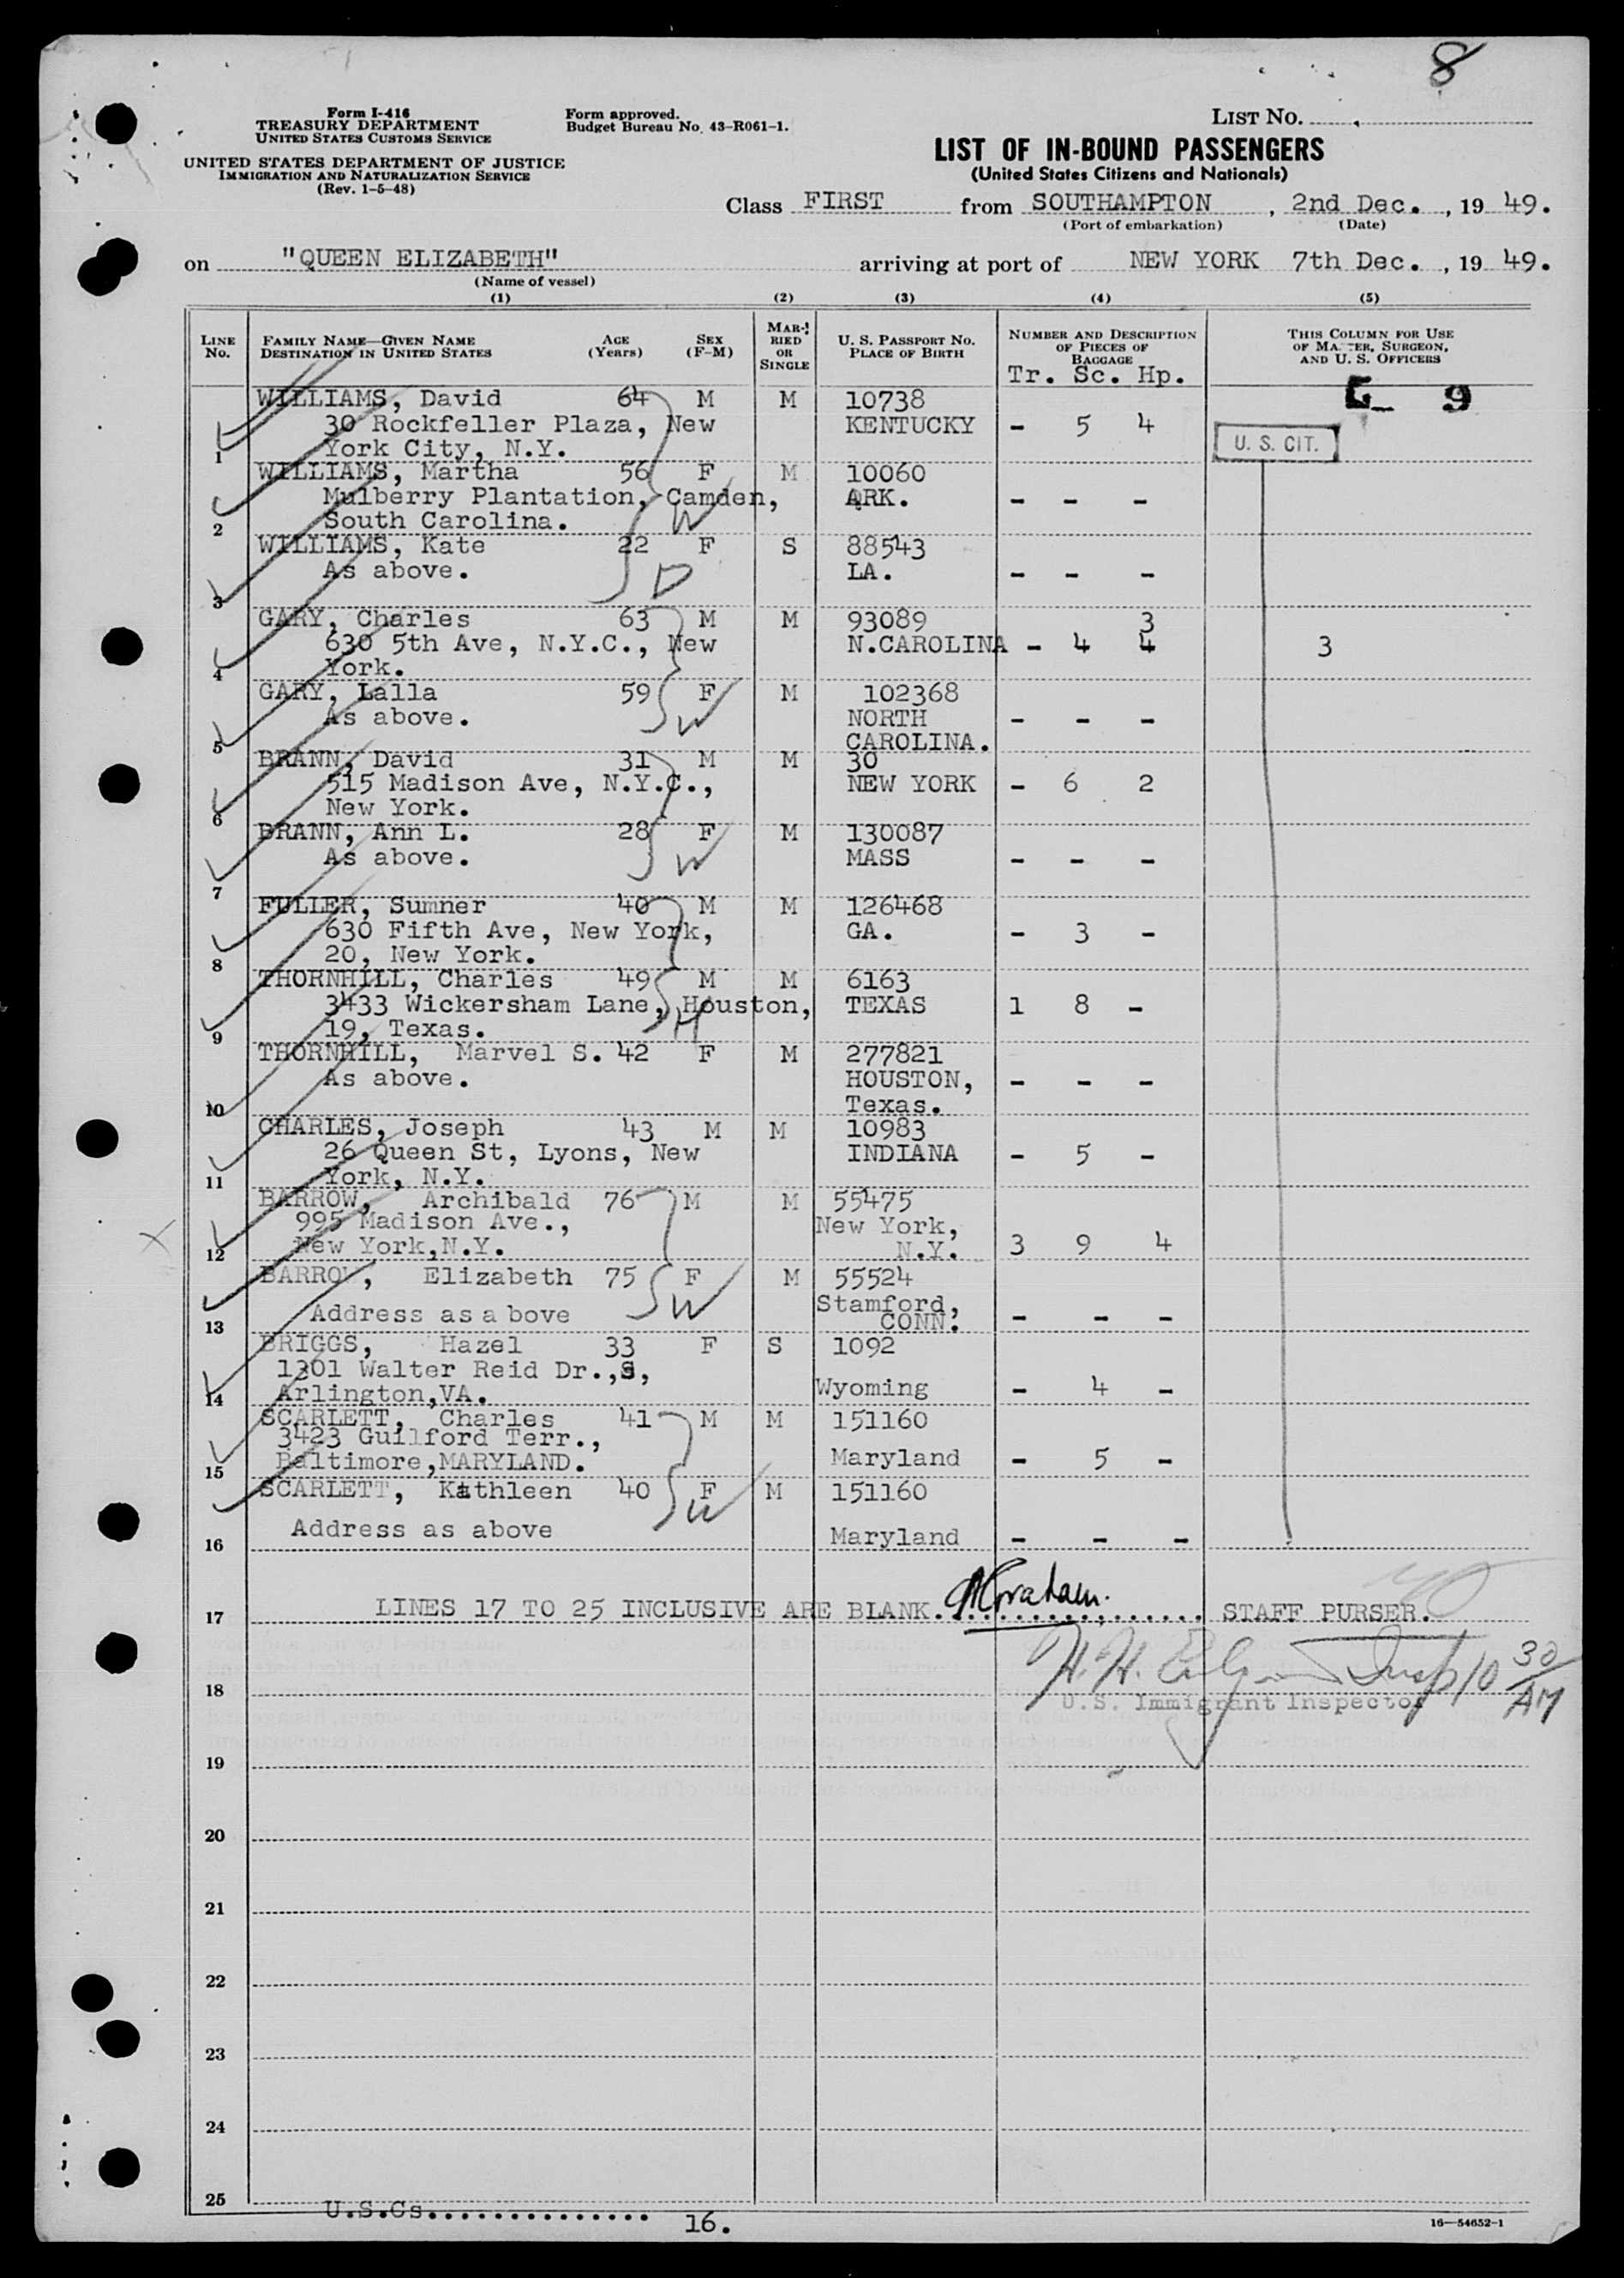 8
Form I-416
TREASURY DEPARTMENT
UNITED STATES CUSTOMS SERVICE
Form approved.
Budget Bureau No. 43-R061-1.
LIST NO.
UNITED STATES DEPARTMENT OF JUSTICE
IMMIGRATION AND NATURALIZATION SERVICE
(Rev. 1-5-48)
LIST OF IN-BOUND PASSENGERS
(United States Citizens and Nationals)
Class FIRST from SOUTHAMPTON, 2nd Dec., 19 49.
(Port of embarkation) (Date)
on "QUEEN ELIZABETH" arriving at port of NEW YORK 7th Dec., 19 49.
(Name of vessel)
(1) (2) (3) (4) (5)
LINE No. FAMILY NAME—GIVEN NAME DESTINATION IN UNITED STATES AGE (Years) SEX (F-M) MARRIED OR SINGLE U. S. PASSPORT No. PLACE OF BIRTH NUMBER AND DESCRIPTION OF PIECES OF BAGGAGE THIS COLUMN FOR USE OF MASTER, SURGEON, AND U. S. OFFICERS
Tr. Sc. Hp.
WILLIAMS, David 64 M M 10738 9
30 Rockfeller Plaza, New KENTUCKY - 5 4 U. S. CIT.
1 York City, N.Y.
WILLIAMS, Martha 56 F M 10060
Mulberry Plantation, Camden, ARK. - - - W
2 South Carolina.
WILLIAMS, Kate 22 F S 88543
As above. LA. - - - D
3
GARY, Charles 63 M M 93089 3
630 5th Ave, N.Y.C., New N.CAROLINA - 4 4 3
4 York.
GARY, Lalla 59 F M 102368
As above. NORTH - - - W
5 CAROLINA.
BRANN, David 31 M M 30
515 Madison Ave, N.Y.C., NEW YORK - 6 2
6 New York.
BRANN, Ann L. 28 F M 130087
As above. MASS - - - W
7
FULLER, Sumner 40 M M 126468
630 Fifth Ave, New York, GA. - 3 -
8 20, New York.
THORNHILL, Charles 49 M M 6163
3433 Wickersham Lane, Houston, TEXAS 1 8 - H
9 19, Texas.
THORNHILL, Marvel S. 42 F M 277821
As above. HOUSTON, - - -
10 Texas.
CHARLES, Joseph 43 M M 10983
26 Queen St, Lyons, New INDIANA - 5 -
11 York, N.Y.
BARROW, Archibald 76 M M 55475
995 Madison Ave., New York,
12 New York,N.Y. N.Y. 3 9 4
BARROW, Elizabeth 75 F M 55524
Address as a bove Stamford, - - - W
13 CONN.
BRIGGS, Hazel 33 F S 1092
1301 Walter Reid Dr.,S,
14 Arlington,VA. Wyoming - 4 -
SCARLETT, Charles 41 M M 151160
3423 Guilford Terr.,
15 Baltimore,MARYLAND. Maryland - 5 -
SCARLETT, Kathleen 40 F M 151160 W
16 Address as above Maryland - - -
17 LINES 17 TO 25 INCLUSIVE ARE BLANK. Graham. STAFF PURSER.
H. H. Insp 10 30/AM
18 U.S. Immigrant Inspector
19
20
21
22
23
24
25
U.S.Cs............... 16.
16—54652-1